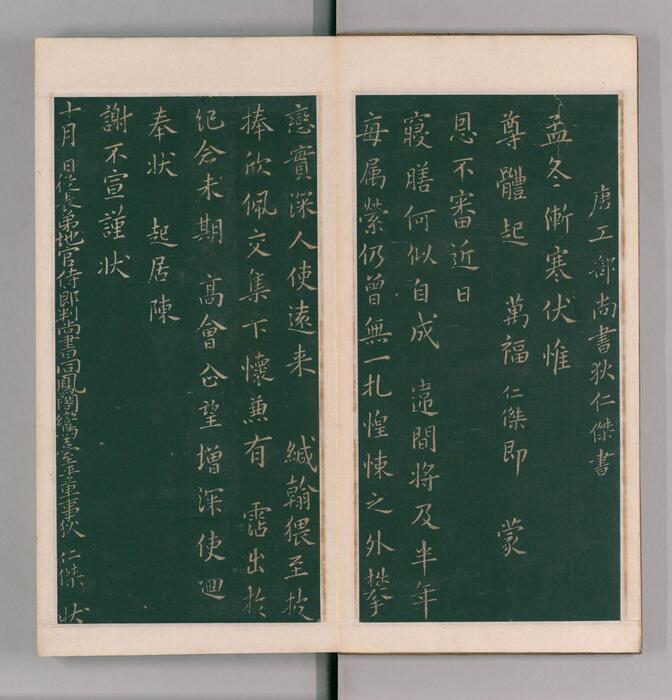 唐工部尚書狄仁傑書
孟冬漸寒伏惟
尊體起 萬福仁傑即 蒙
恩不審近日
寢膳何似自成 違間將及半年
每属縈仍曾無一札惶悚之外攀
戀實深人使遠来 緘翰猥至披
捧欣佩交集下懷兼有 霑出於
紀念未期 髙會企望增深使廻
奉状 起居陳
謝不宣謹状
十月 日從表弟地官侍郎判尚書同鳳閣鸞臺平章事狄 仁傑 状